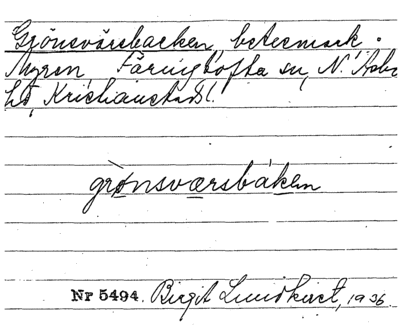 Grönsvärsbacken, betesmark.
Myren, Färingtofta sn, N. Åsbo
hd, Kristianstads l.
grònsværsbáken
Nr 5494. Birgit Lundkvist, 1936